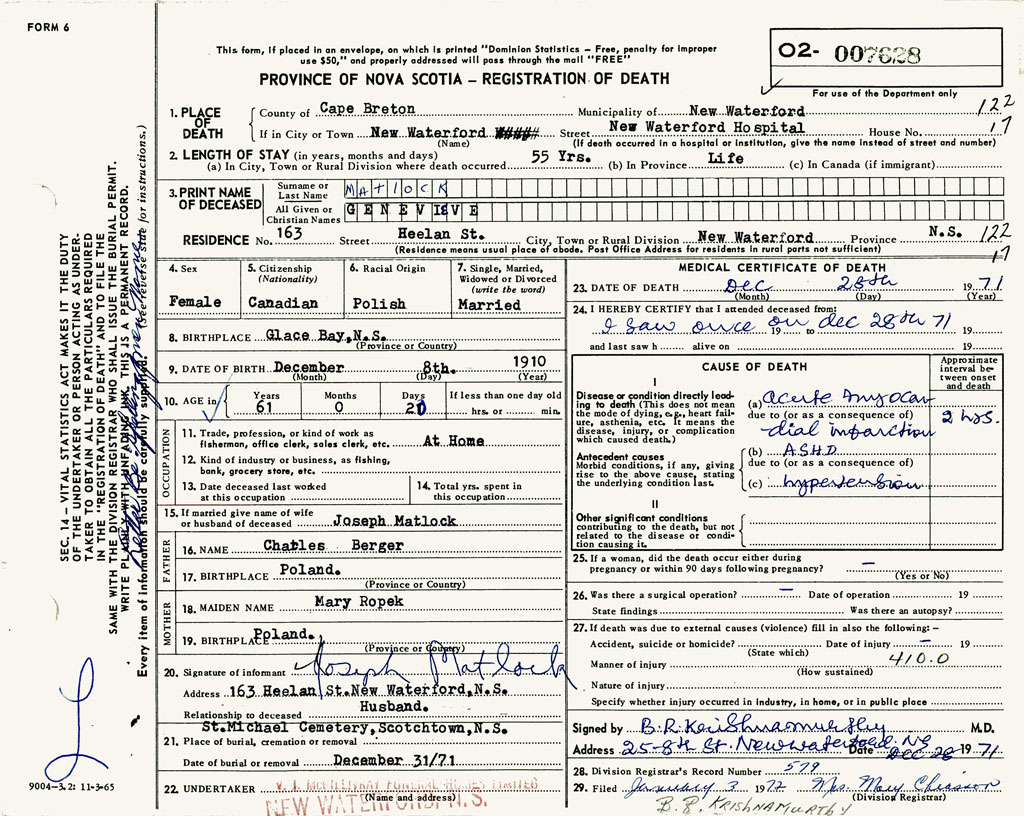 FORM 6
This form, if placed in an envelope, on which is printed "Dominion Statistics – Free, penalty for improper
use $50," and properly addressed will pass through the mail "FREE"
PROVINCE OF NOVA SCOTIA – REGISTRATION OF DEATH
02- 007628
For use of the Department only
1. PLACE OF DEATH
County of Cape Breton Municipality of New Waterford 122
If in City or Town New Waterford Street New Waterford Hospital House No. 17
(Name) (If death occurred in a hospital or institution, give the name instead of street and number)
2. LENGTH OF STAY (in years, months and days)
(a) In City, Town or Rural Division where death occurred 55 Yrs. (b) In Province Life (c) In Canada (if immigrant)
3. PRINT NAME OF DECEASED
Surname or Last Name MATLOCK
All Given or Christian Names GENEVIEVE
RESIDENCE No. 163 Street Heelan St. City, Town or Rural Division New Waterford Province N.S. 122
(Residence means usual place of abode. Post Office Address for residents in rural parts not sufficient) 17
4. Sex
Female
5. Citizenship
(Nationality)
Canadian
6. Racial Origin
Polish
7. Single, Married,
Widowed or Divorced
(write the word)
Married
8. BIRTHPLACE Glace Bay,N.S.
(Province or Country)
9. DATE OF BIRTH December 8th. 1910
(Month) (Day) (Year)
10. AGE in
Years Months Days If less than one day old
61 0 20 hrs. or min.
OCCUPATION
11. Trade, profession, or kind of work as
fisherman, office clerk, sales clerk, etc. At Home
12. Kind of industry or business, as fishing,
bank, grocery store, etc.
13. Date deceased last worked
at this occupation
14. Total yrs. spent in
this occupation
15. If married give name of wife
or husband of deceased Joseph Matlock
FATHER
16. NAME Charles Berger
17. BIRTHPLACE Poland.
(Province or Country)
MOTHER
18. MAIDEN NAME Mary Ropek
19. BIRTHPLACE Poland.
(Province or Country)
20. Signature of informant Joseph Matlock
Address 163 Heelan St.New Waterford,N.S.
Relationship to deceased Husband.
St.Michael Cemetery,Scotchtown,N.S.
21. Place of burial, cremation or removal
Date of burial or removal December 31/71
22. UNDERTAKER FUNERAL HOMES LIMITED
(Name and address)
NEW WATERFORD N.S.
MEDICAL CERTIFICATE OF DEATH
23. DATE OF DEATH Dec 28th 1971
(Month) (Day) (Year)
24. I HEREBY CERTIFY that I attended deceased from:
I saw once on dec 28th 71
19 to 19
and last saw h alive on 19
CAUSE OF DEATH
Approximate interval between onset and death
I
Disease or condition directly leading
to death (This does not mean
the mode of dying, e.g., heart failure,
asthenia, etc. It means the
disease, injury, or complication
which caused death.)
(a) acute myocar
due to (or as a consequence of) 2 hrs.
dial infarction
Antecedent causes
Morbid conditions, if any, giving
rise to the above cause, stating
the underlying condition last.
(b) ASHD
due to (or as a consequence of)
(c) hypertension
II
Other significant conditions
contributing to the death, but not
related to the disease or condition
causing it.
25. If a woman, did the death occur either during
pregnancy or within 90 days following pregnancy? –
(Yes or No)
26. Was there a surgical operation? – Date of operation 19
State findings Was there an autopsy?
27. If death was due to external causes (violence) fill in also the following: –
Accident, suicide or homicide? Date of injury – 19
(State which)
Manner of injury 410.0
(How sustained)
Nature of injury
Specify whether injury occurred in industry, in home, or in public place
Signed by B.R. Krishnamurthy M.D.
Address 25-8th St. New waterford. NS Date Dec 28 1971
28. Division Registrar's Record Number 579
29. Filed January 3 1972 Mrs. Mary Chiasson
(Division Registrar)
B. R. KRISHNAMURTHY
SEC. 14 – VITAL STATISTICS ACT MAKES IT THE DUTY
OF THE UNDERTAKER OR PERSON ACTING AS UNDER-
TAKER TO OBTAIN ALL THE PARTICULARS REQUIRED
IN THE "REGISTRATION OF DEATH" AND TO FILE THE
SAME WITH THE DIVISION REGISTRAR WHO SHALL ISSUE THE BURIAL PERMIT.
WRITE PLAINLY WITH UNFADING INK. THIS IS A PERMANENT RECORD.
Every item of information should be carefully supplied. (See reverse side for instructions.)
9004-3.2: 11-3-65